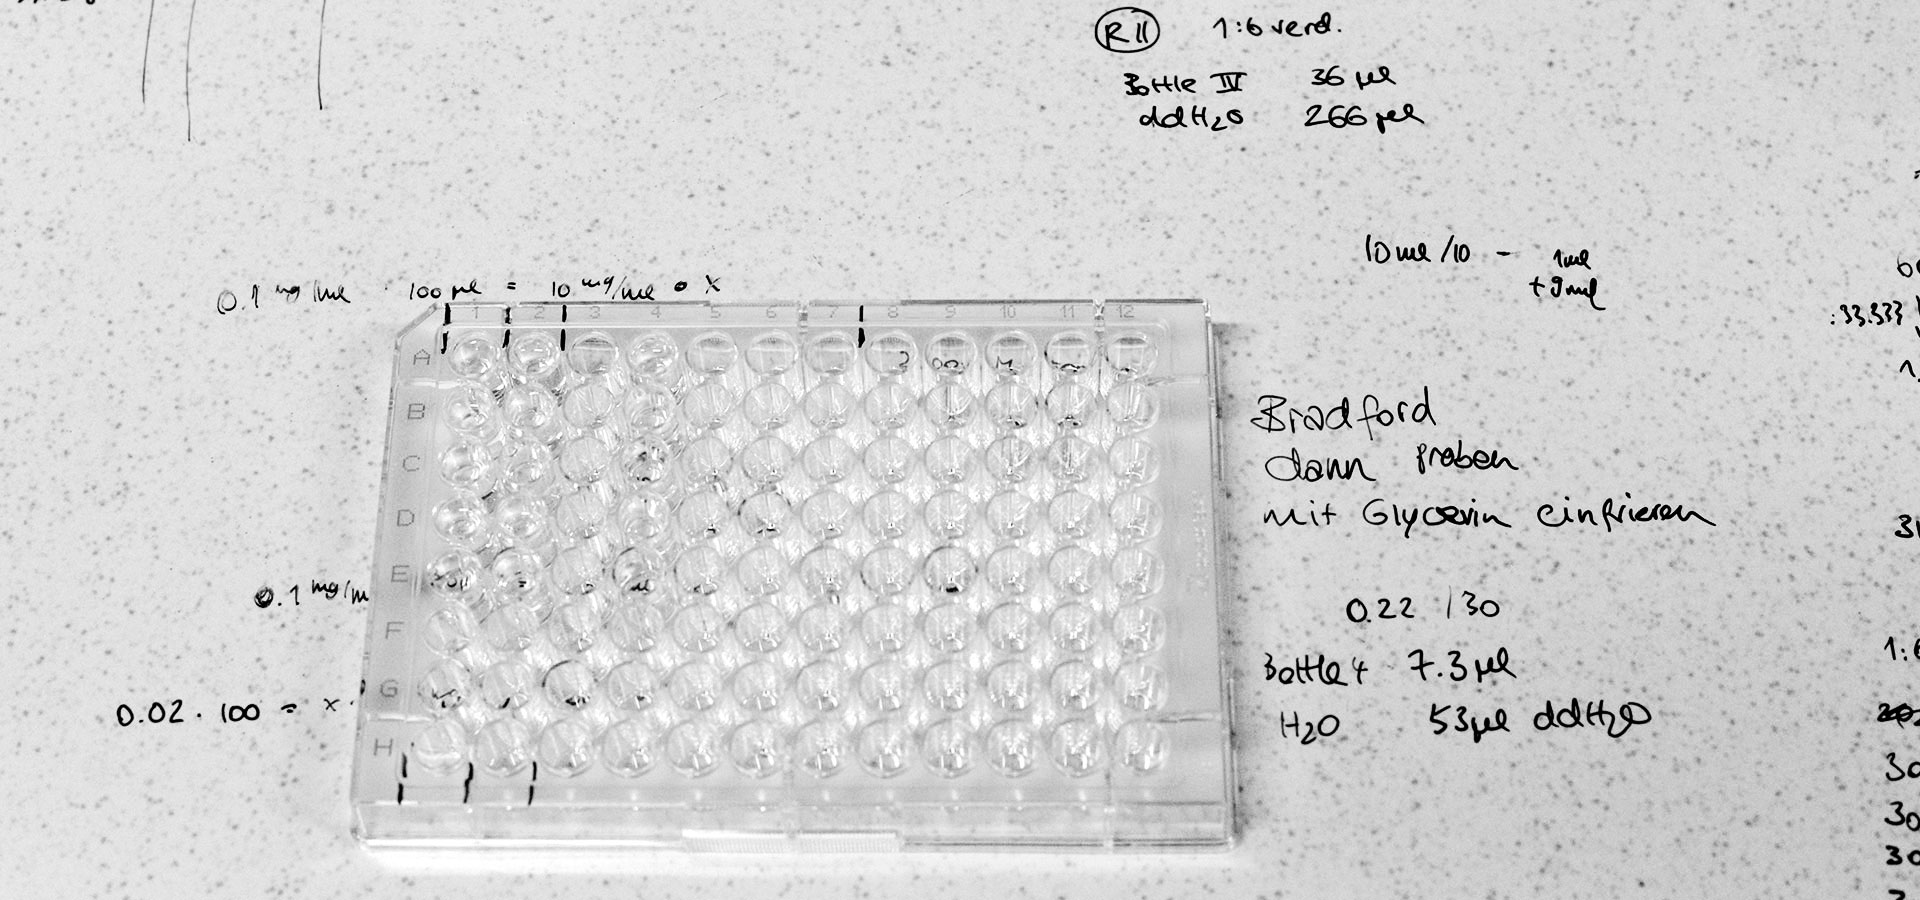 R II 1:6 verd.
Bottle IV 36 µl
ddH₂O 266 µl
10 ml /10 - 1 ml
+ 9 ml
0.1 mg/ml · 100 µl = 10 mg/ml • x
:33.333
1 2 3 4 5 6 7 8 9 10 11 12
A
B
C
D
E
F
G
H
Bradford
dann Proben
mit Glycerin einfrieren
0.1 mg/m
0.22 /30
Bottle 4 7.3 µl
H₂O 53 µl ddH₂O
0.02 · 100 = x ·
30
30
30